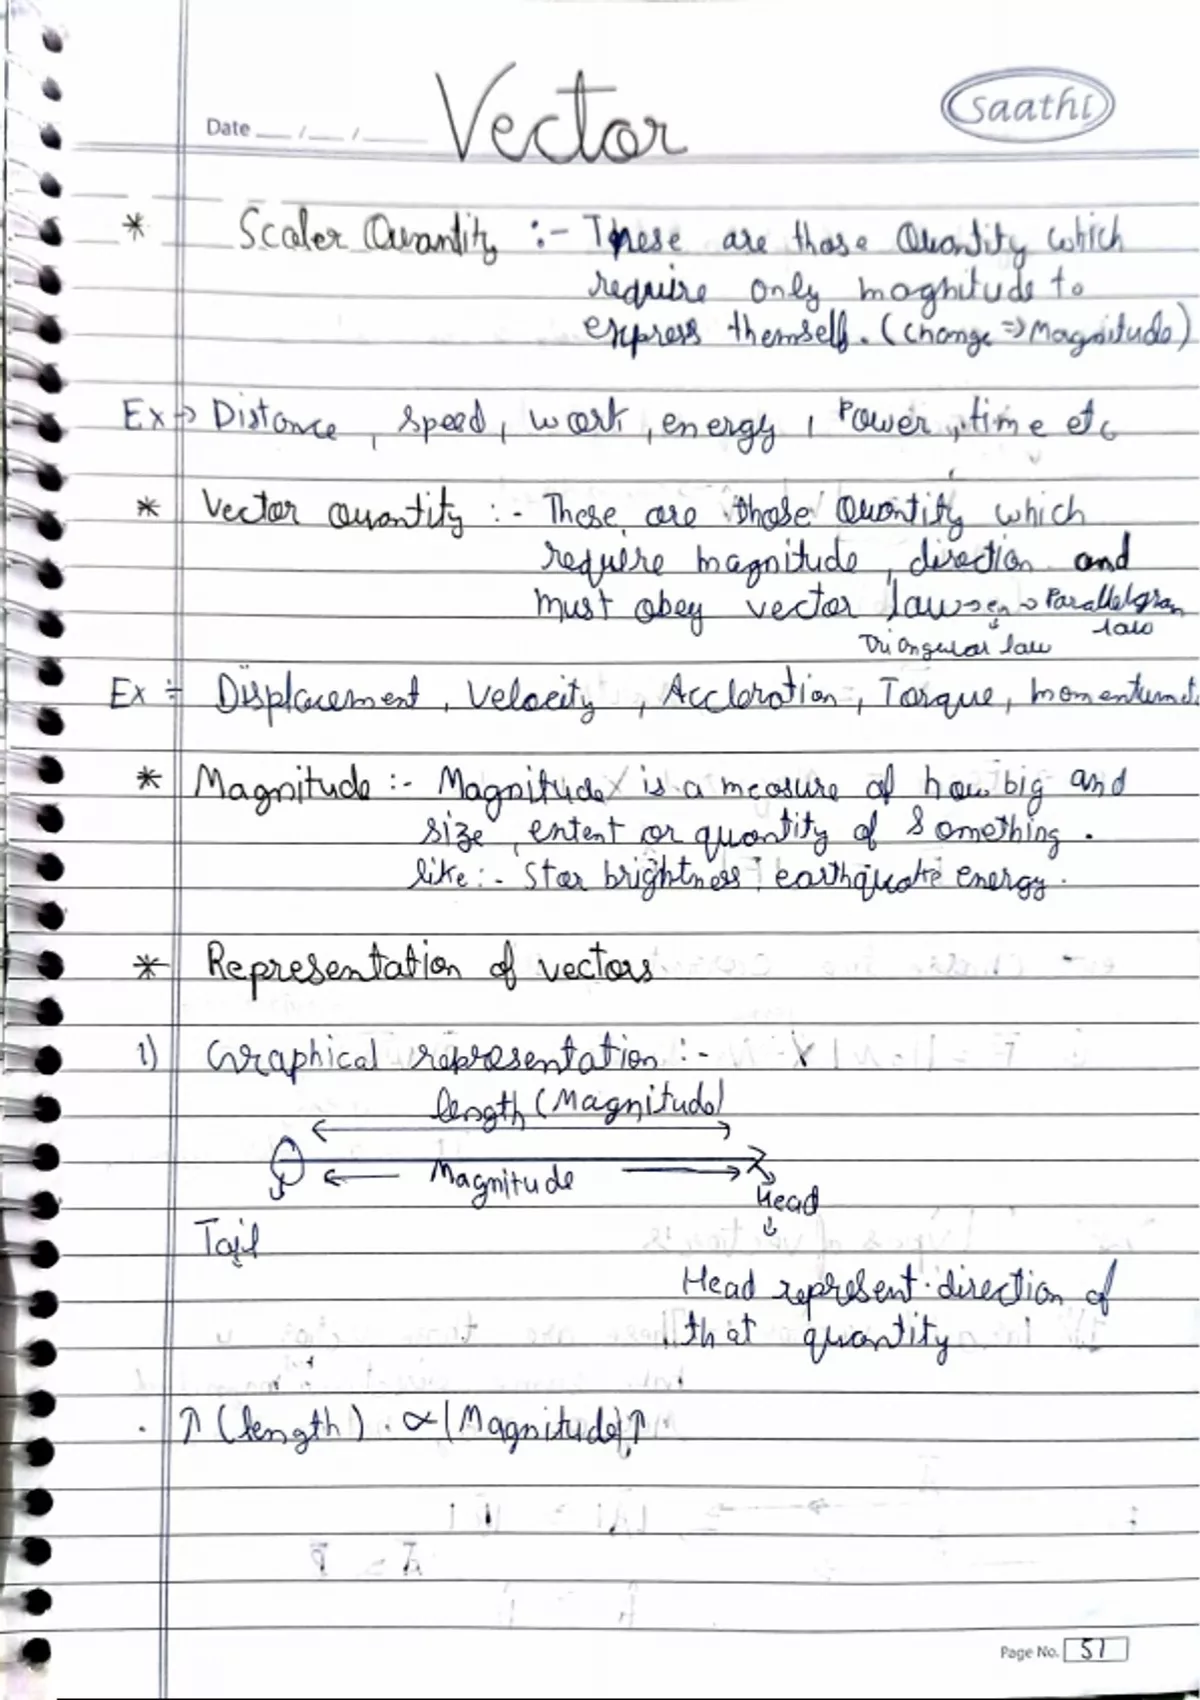 Vector
Date __/__/____
Saathi
* Scaler Quantity :- These are those Quantity which
require only maghitude to
express themself. (Change => Magnitude)
Ex -> Distance, speed, work, energy, Power, time etc
* Vector quantity :- These are those Quantity which
require magnitude, direction and
must obey vector law -> ex -> Parallelgram
law
Triangular law
Ex :- Displacement, Velocity, Accleration, Torque, momentum et
* Magnitude :- Magnitude is a measure of how big and
size, extent or quantity of something.
like :- Star brightness, earthquake energy.
* Representation of vectors
1) Graphical representation :-
length (Magnitude)
Magnitude
Head
Tail
Head represent direction of
that quantity
↑ (length) ∝ (Magnitude) ↑
Page No. 51